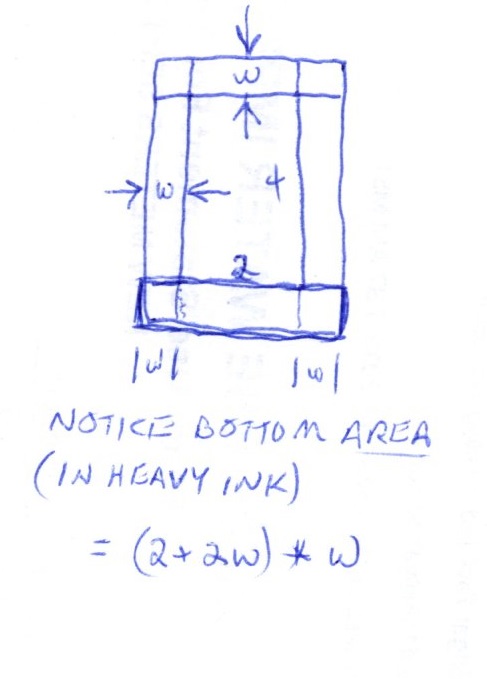 w
w 4
2
|w| |w|
NOTICE BOTTOM AREA
(IN HEAVY INK)
= (2+2w) * w